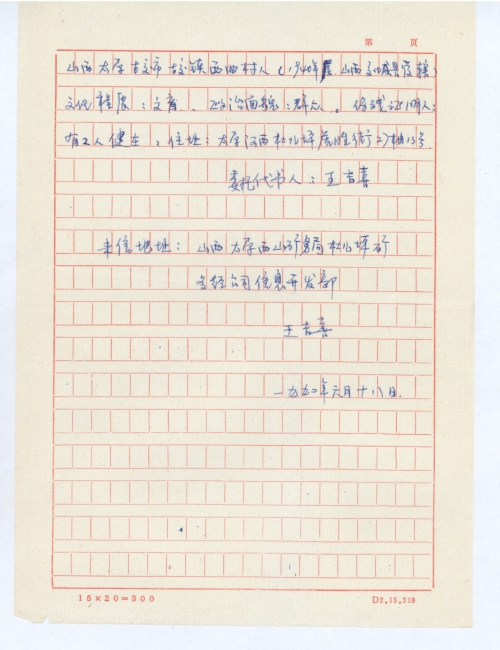 第　页
山西太原古交市古交镇西曲村人(1940年属山西交城县管辖)
文化程度:文盲、政治面貌:群众。伤残证明人:
有工人健在,住址:太原河西杜儿坪
委托代书人:王吉喜
来信地址:山西太原西山矿务局杜儿坪矿
多经公司信息开发部
王吉喜
一九九二年六月十八日.
15×20=300
D2.13.319